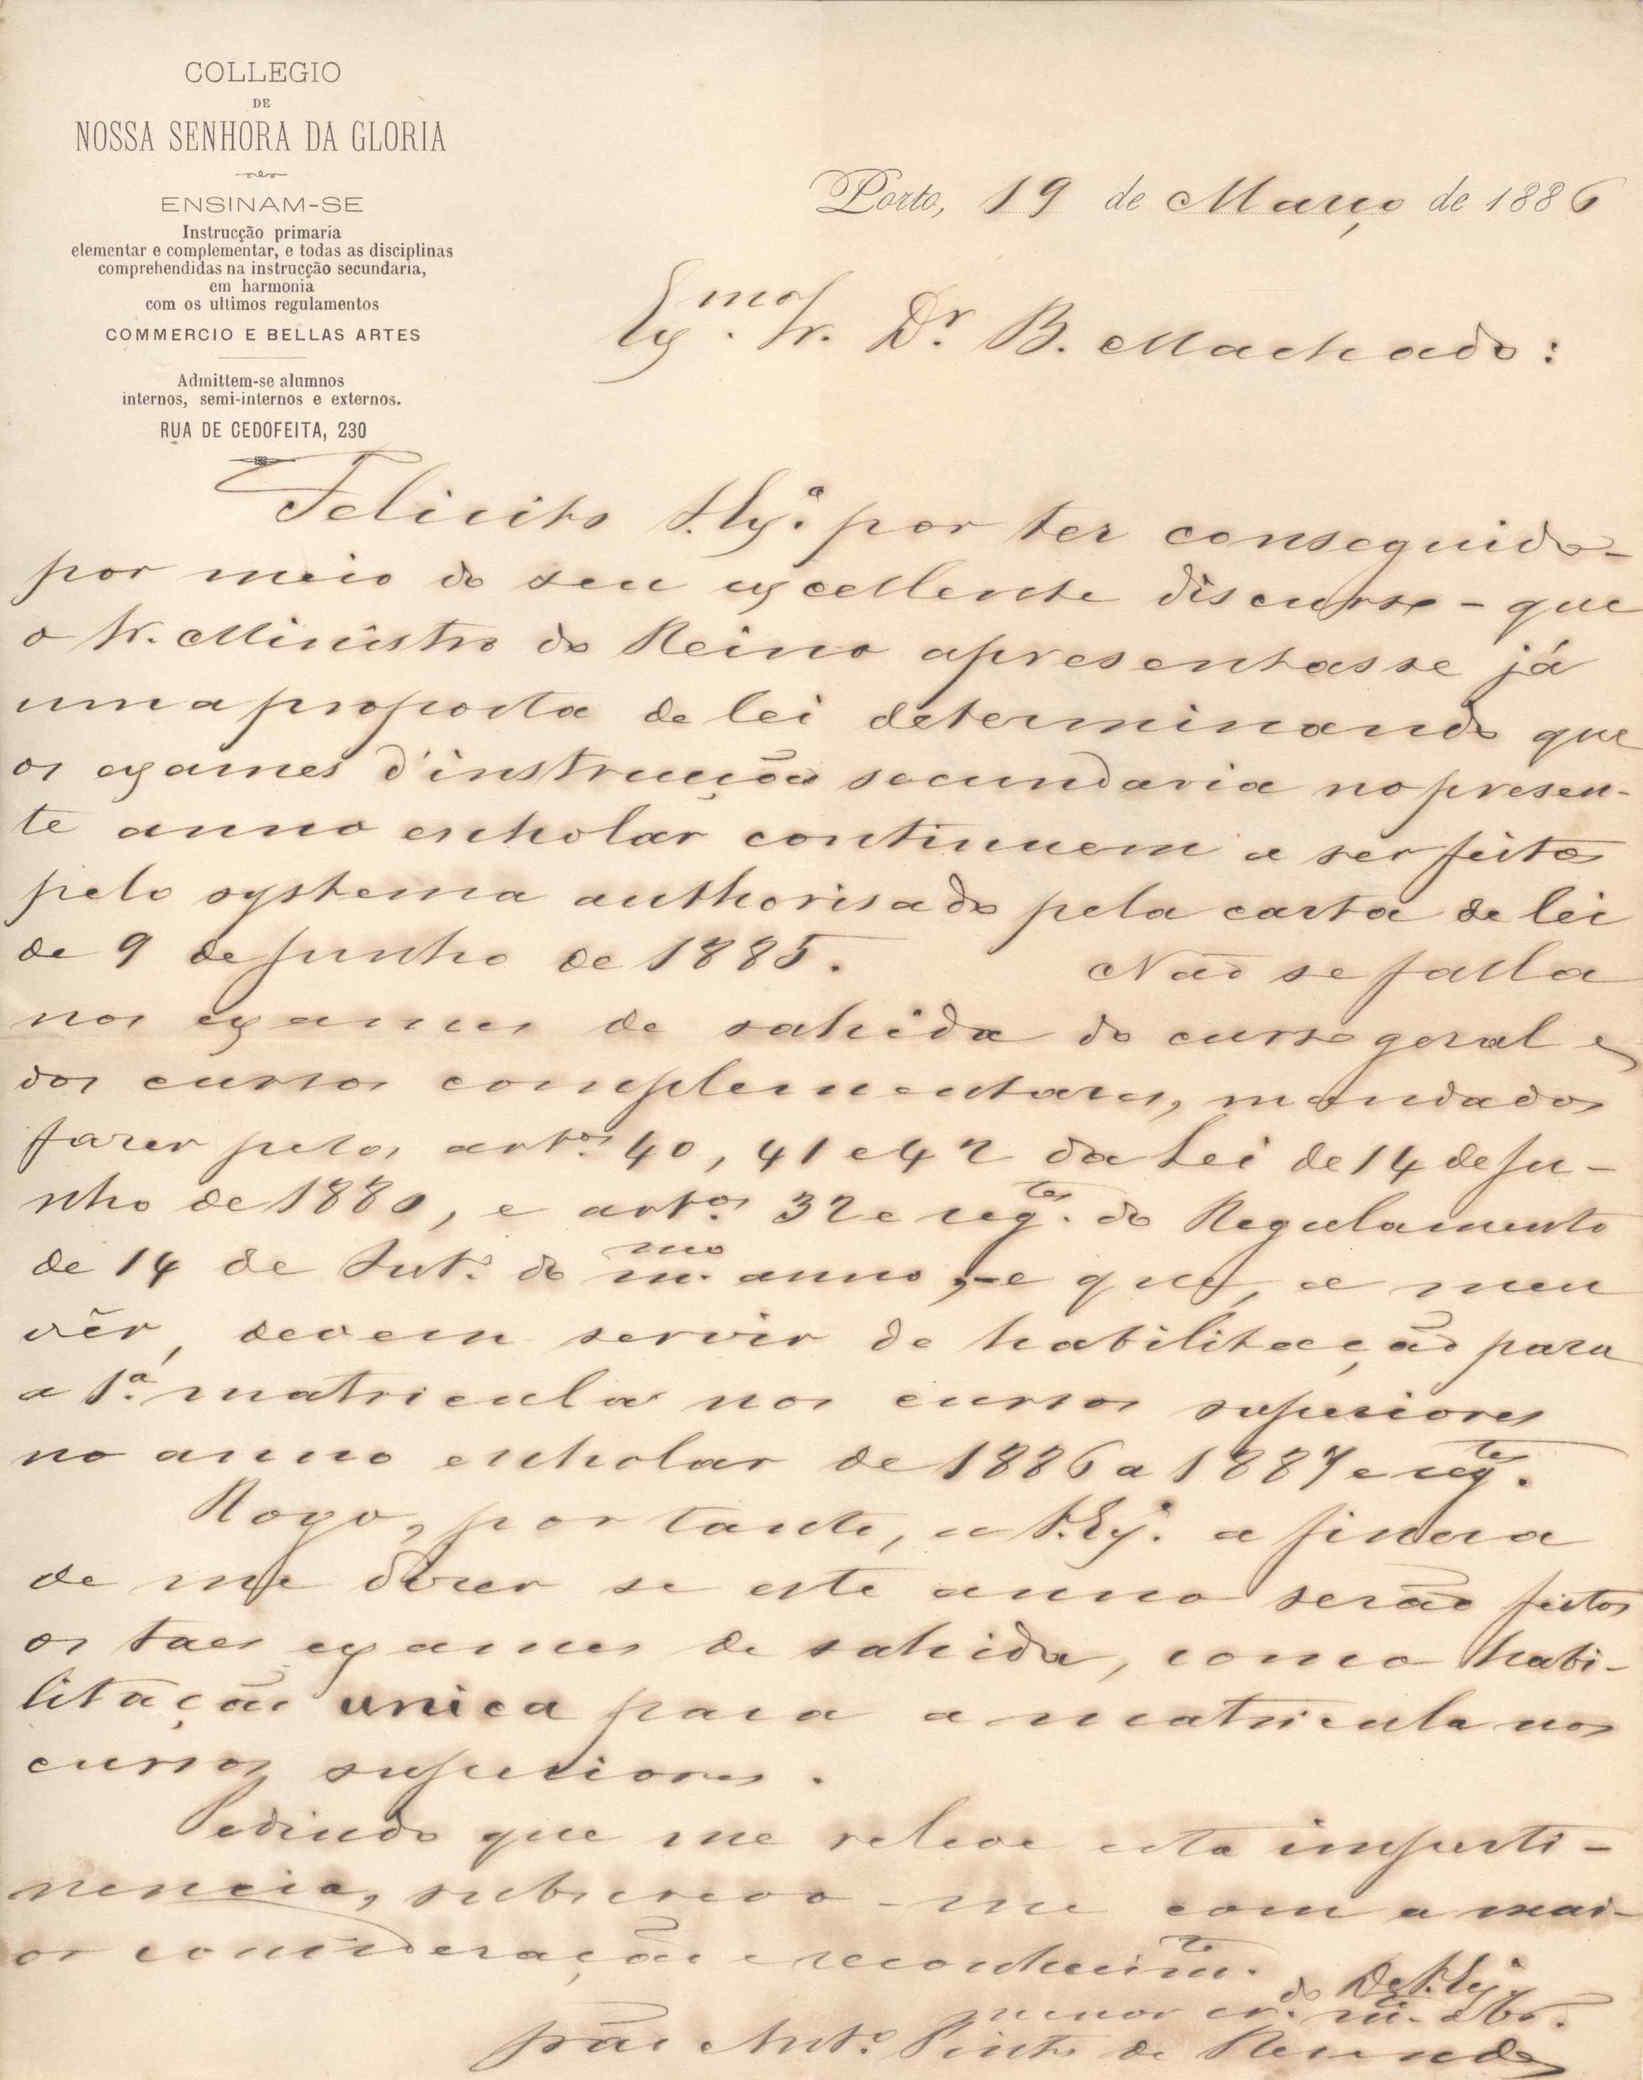 COLLEGIO
DE
NOSSA SENHORA DA GLORIA
ENSINAM-SE
Instrucção primaria
elementar e complementar, e todas as disciplinas
comprehendidas na instrucção secundaria,
em harmonia
com os ultimos regulamentos
COMMERCIO E BELLAS ARTES
Admittem-se alumnos
internos, semi-internos e externos.
RUA DE CEDOFEITA, 230
Porto, 19 de Março de 1886
Exmo. Sr. Dr. B. Machado:
Felicito S. Exª. por ter conseguido-
por meio do seu excellente discurso - que
o Sr. Ministro do Reino apresentasse já
uma proposta de lei determinando que
os exames d'instrucção secundaria no presen-
te anno escholar continuem a ser feitos
pelo systema authorisado pela carta de lei
de 9 de Junho de 1885. Não se falla
nos exames de sahida do curso geral e
dos cursos complementares, mandados
fazer pelos artos. 40, 41 e 42 da Lei de 14 de Ju-
nho de 1880, e artos. 32 e segtes. do Regulamento
de 14 de Out.º do mmo. anno, - e que, a meu
vêr, devem servir de habilitação para
a 1.ª matricula nos cursos superiores
no anno escholar de 1886 a 1887 e segtes.
Rogo, por tanto, a S. Exª. a fineza
de me dizer se este anno serão feitos
os taes exames de sahida, como habi-
litação unica para a matricula nos
cursos superiores.
Pedindo que me releve esta imperti-
nencia, subscrevo-me com a mai-
or consideração e reconhecimto.
De S. Exª.
menor cr.do m.to obr.
Anto. Pinto de Resende